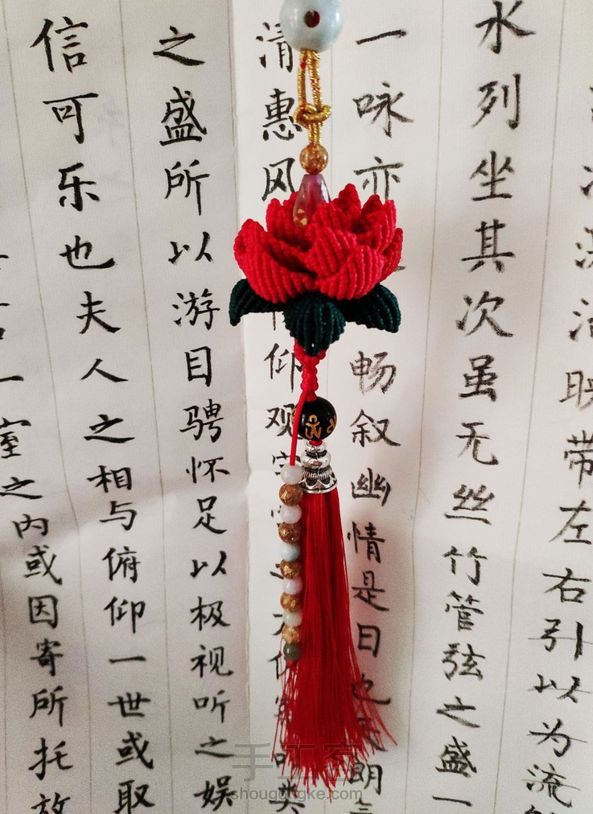 映带左右引以为流
水列坐其次虽无丝竹管弦之盛一
一咏亦畅叙幽情是日也天朗
清惠风仰观类
之盛所以游目骋怀足以极视听之娱
信可乐也夫人之相与俯仰一世或取
一室之内或因寄所托放
手工客
shougongke.com